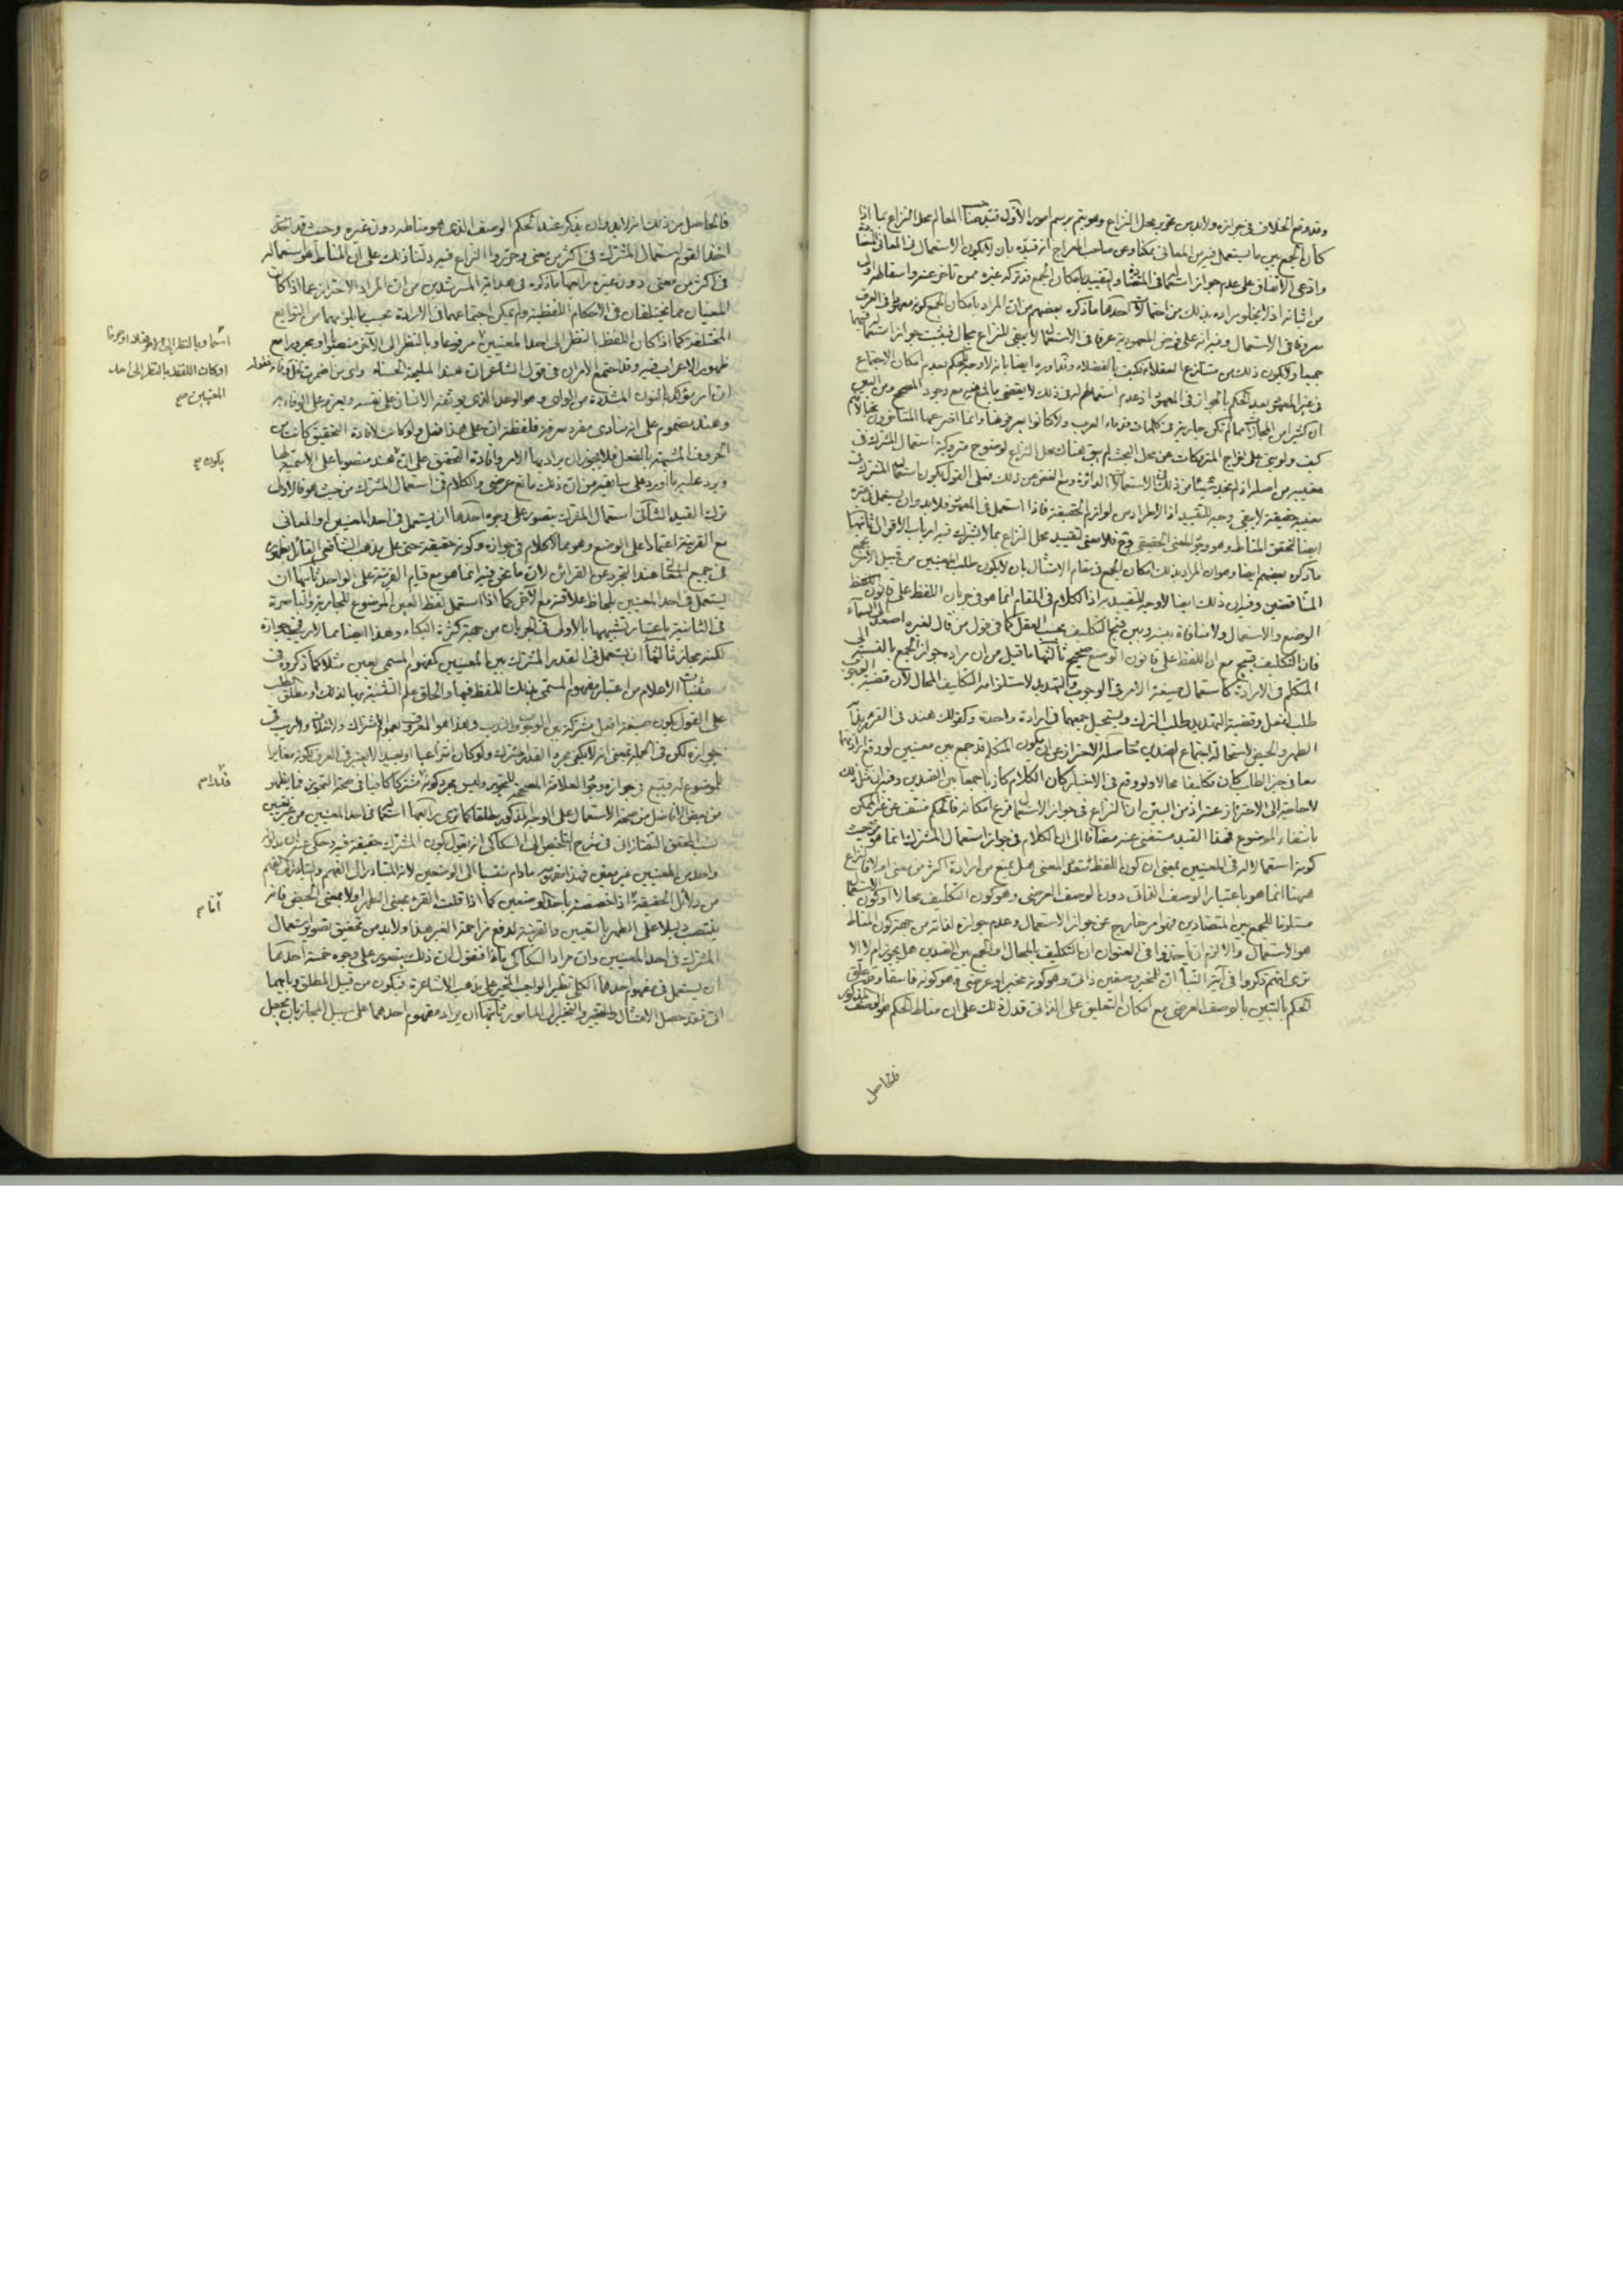 وقد وقع الخلاف في جوازه ولا بد من تحرير محل النزاع وهو يتم برسم امور الأول قيد صاحب المعالم محل النزاع بما اذا
كان الجمع بين ما يستعمل فيه من المعانى ممكنا وعن صاحب المعراج انه قيده بان لا يكون الاستعمال في المعانى
وادعى الاتفاق على عدم جواز استعماله في والتقييد بامكان الجمع قد تركه غيره ممن تأخر عنه واسقاطه اولى
من اثباته اذ لا يخلو مراده بذلك من احتمالات احدها ما ذكره بعضهم من ان المراد بامكان الجمع كونه معهودا في العرف
معروفا في الاستعمال وفيه انه على فرض المعهودية عرفا في الاستعمال لا يبقى للنزاع مجال فيثبت جواز استعماله فيهما
جميعا ولا يكون ذلك من متنازع العقلاء فكيف بالفضلاء وقد اورد ايضا بانه لا وجه للحكم بعدم امكان الاجتماع
في غير المعهود بعد الحكم بالجواز في المعهود اذ عدم استعمالهم له في ذلك لا يقضى بالمنع منه مع وجود المصحح ومن البين
ان كثيرا من المجازات مما لم تكن جارية في كلمات قدماء العرب ولا كانوا يعرفونها وانما اخترعها المتأخرون
كيف ولو بنى على اخراج المتروكات عن محل البحث لم يبق هناك محل النزاع لوضوح متروكية استعمال المشترك في
معنييه من اصله اذ لم نجد شيئا من ذلك في الاستعمالات الدائرة ومع الغض عن ذلك فعلى القول بكون استعمال المشترك في
معنييه حقيقة لا يبقى وجه للتقييد اذ الاطراد من لوازم الحقيقة فاذا استعمل في المعهود فلا بد وان يستعمل في غيره
ايضا لتحقق المناط وهو وجود المعنى الحقيقي وح فلا معنى لتقييد محل النزاع بما لا يشترك فيه ارباب الاقوال ثانيها
ما ذكره بعضهم ايضا وهو ان المراد بذلك امكان الجمع في مقام الامتثال بان لا يكون طلب المعنيين من قبيل الامر
المتناقضين وفيه ان ذلك ايضا لا وجه للتقييد به اذ الكلام في المقام انما هو في جريان اللفظ على قانون
الوضع والاستعمال ولا منافاة بينه وبين قبح التكليف بحسب العقل كما في قول من قال لغيره اصعد الى السماء
فان التكليف قبيح مع ان اللفظ على قانون الوضع صحيح ثالثها ما قيل من ان مراده جواز الجمع بالنسبة الى
المتكلم في الارادة كاستعمال صيغة الامر في الوجوب والتهديد لاستلزامه التكليف المحال لان قضية الوجوب
طلب الفعل وقضية التهديد طلب الترك ويستحيل جمعهما في ارادة واحدة وكقولك هند في القرء
الطهر والحيض لاستحالة اجتماع الضدين حاصله الاحتراز عن ان يكون المتكلم قد جمع بين معنيين لو وقع ارادتهما
معا في حيز الطلب كان تكليفا محالا ولو وقع في الاخبار كان الكلام كاذبا جمعا بين الضدين وفيه ان مثل ذلك
لا حاجة الى الاحتراز عنه اذ من البين ان النزاع في جواز الاستعمال فرع امكانه فالحكم منتف عن غير الممكن
بانتفاء الموضوع فهذا القيد مستغنى عنه مضافا الى ان الكلام في جواز استعمال المشترك انما هو من حيث
كونه استعمالا له في المعنيين بمعنى ان كون اللفظ متعدد المعنى هل يمنع من ارادة اكثر من معنى اولا فالنزاع
ههنا انما هو باعتبار الوصف الذاتى دون الوصف العرضى وهو كون التكليف محالا او كون الاستعمال
مستلزما للجمع بين المتضادين فهو امر خارج عن جواز الاستعمال وعدم جوازه لذاته من جهة كون المناط
هو الاستعمال والا لزم ان ياخذوا في العنوان ان التكليف بالمحال او الجمع بين الضدين هل يجوز ام لا الا
ترى انهم ذكروا في آية النبأ ان للخبر وصفين ذاتى وهو كونه خبرا وعرضى وهو كونه فاسقا وقد علق
الحكم بالتبين بالوصف العرضى مع امكان التعليق على الذاتى فدل ذلك على ان مناط الحكم هو الوصف المذكور
فالحاصل
فالحاصل من ذلك انه لا بد وان يذكر عند الحكم الوصف الذى هو مناطه دون غيره وحيث قد
اخذ القوم استعمال المشترك في اكثر من معنى وحرروا النزاع فيه دلنا ذلك على ان المناط هو استعماله
في اكثر من معنى دون غيره رابعها ما ذكره في هداية المسترشدين من ان المراد الاحتراز عما اذا كان
المعنيان مما يختلفان في الاحكام اللفظية ولم يمكن اجتماعهما في الارادة بحسب ما يلزمهما من التوابع
المختلفة كما اذا كان اللفظ بالنظر الى احد المعنيين مرفوعا وبالنظر الى الآخر منصوبا او مجرورا مع
ظهور الاعراب فيه وقد اجتمع الامران في قول الشاعر ان هند المليحة الحسناء واى من اضمرت لخل وفاء
ان امر مؤكد بالنون المشددة من الواى وهو الوعد الذى يوثقه الانسان على نفسه ويعزم على الوفاء به
وهند مضموم على انه منادى مفرد معرفة فلفظة ان على هذا فعل ولو كانت لافادة التحقيق كانت من
الحروف المشبهة بالفعل فلا يجوز ان يراد بها الامر وافادة التحقيق على ان هند منصوبا على الاسمية لها
ويرد عليه ما اورد على سابقيه من ان ذلك مانع عرضى والكلام في استعمال المشترك من حيث هو فالاولى
ترك القيد الثانى استعمال المشترك يتصور على وجوه احدها ان يستعمل في احد المعنيين او المعانى
مع القرينة اعتمادا على الوضع وهو مما لا كلام في جوازه وكونه حقيقة حتى على مذهب الشافعى القائل بظهوره
في جميع المعانى عند التجرد عن القرائن لان ما نحن فيه انما هو مع قيام القرينة على الواحد ثانيها ان
يستعمل في احد المعنيين بلحاظ علاقته مع الآخر كما اذا استعمل لفظ العين الموضوع للجارية والباصرة
في الثانية باعتبار تشبيهها بالاولى في الجريان من جهة كثرة البكاء وهذا ايضا مما لا ريب في جوازه
لكنه مجاز ثالثها ان يستعمل في القدر المشترك بين المعنيين كمفهوم المسمى بعين مثلا كما ذكروه في
مثنيات الاعلام من اعتبار مفهوم المسمى بذلك اللفظ فيها والحاق علم التثنية بها لذلك او مطلق الطلب
على القول بكون صيغة افعل مشتركة بين الوجوب والندب وهذا هو المعروف بعموم الاشتراك ولا خلاف ولا ريب في
جوازه لكن في الجملة بمعنى انه لا يكفى مجرد القدر المشترك ولو كان انتزاعيا او بعيدا لا يعتبر في العرف لكونه مغايرا
للموضوع له فيتبع في جوازه وجود العلاقة المصححة للتجوز وليس مجرد كونه مشتركا كافيا في صحة التجوز فما يظهر
من بعض الافاضل من صحة الاستعمال على الوجه المذكور مطلقا كما ترى رابعها استعماله في احد المعنيين من غير تعيين
نسب المحقق التفتازانى في شرح التلخيص الى السكاكى انه يقول بكون المشترك حقيقة فيه وحكى عنه ان
واحد من المعنيين غير معين فهذا مفهومه ما دام منتسبا الى الوضعين لانه المتبادر الى الفهم والتبادر الى الفهم
من دلائل الحقيقة اذا خصصته باحد الوضعين كما اذا قلت القرء بمعنى الطهر او لا بمعنى الحيض فانه
ينتصب دليلا على الطهر بالتعيين والقرينة لدفع مزاحمة الغير هذا ولا بد من تحقيق تصوير استعمال
المشترك في احد المعنيين وان مراد السكاكى ماذا فنقول ان ذلك يتصور على وجوه خمسة احدها
ان يستعمل في مفهوم احدهما الكلى نظير الواجب المخير على مذهب الاشاعرة فيكون من قبيل المطلق وبايهما
اتى فقد حصل الامتثال والتعيين والتخيير الى المأمور ثانيها ان يراد مفهوم احدهما على سبيل المجاز بان يجعل
اسما وبالنظر الى الآخر فعلا او حرفا
او كان اللفظ بالنظر الى احد
المعنيين صح
يكون صح
قلد صح
اما صح